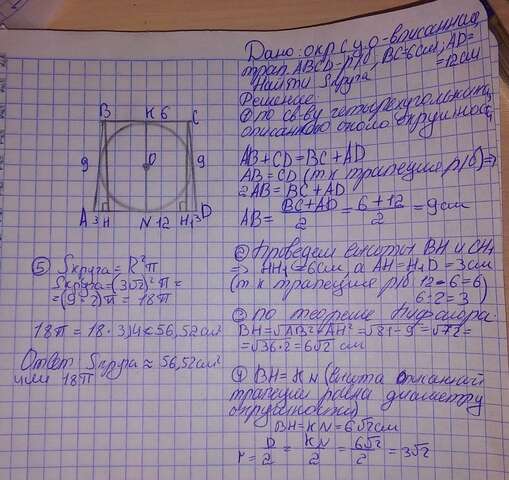 Дано: окр с ц. О - вписанная,
трап. ABCD - р/б, BC=6см; AD=
=12см
Найти: Sкруга
Решение:
① по св-ву четырехугольника,
описанного около окружности,
AB+CD=BC+AD
AB=CD (т.к трапеция р/б) ⇒
2AB=BC+AD
AB = BC+AD/2 = 6+12/2 = 9см
② Проведем высоты BH и CH₁
⇒ HH₁=6см, а AH=H₁D=3см
(т.к трапеция р/б 12-6=6
6:2=3)
③ по теореме Пифагора:
BH=√AB²+AH²=√81-9=√72=
=√36·2=6√2 см
④ BH=KN (высота описанной
трапеции равна диаметру
окружности)
BH=KN=6√2см
r = D/2 = KN/2 = 6√2/2 = 3√2
B K 6 C
9 O 9
A 3 H N 12 H₁ 3 D
⑤ Sкруга=R²π
Sкруга=(3√2)²π=
=(9·2)π=18π
18π=18·3,14≈56,52см²
Ответ: Sкруга≈56,52см²
или 18π